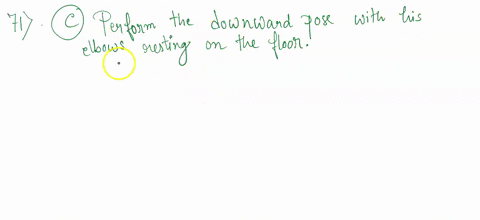 71) . (C) Perform the downward pose with his
elbows resting on the floor.